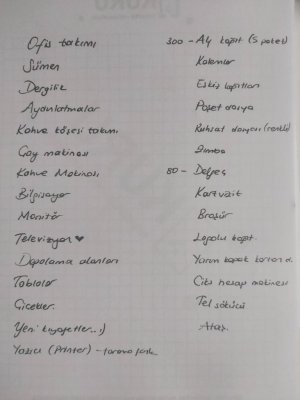 Ofis takımı
Sümen
Dergilik
Aydınlatmalar
Kahve köşesi takımı
Çay makinası
Kahve Makinası
Bilgisayar
Monitör
Televizyon ♥
Depolama alanları
Tablolar
Çiçekler
Yeni kıyafetler.. :)
Yazıcı (Printer) - tarama
300 - A4 kağıt (5 paket)
Kalemler
Eskiz kağıtları
Poşet dosya
Ruhsat dosyası (renkli)
Zımba
80 - Defter
Kartvizit
Broşür
Logolu kağıt.
Yarım kapak karton d.
Çıkış hesap makinesi
Tel sökücü
Ataş.